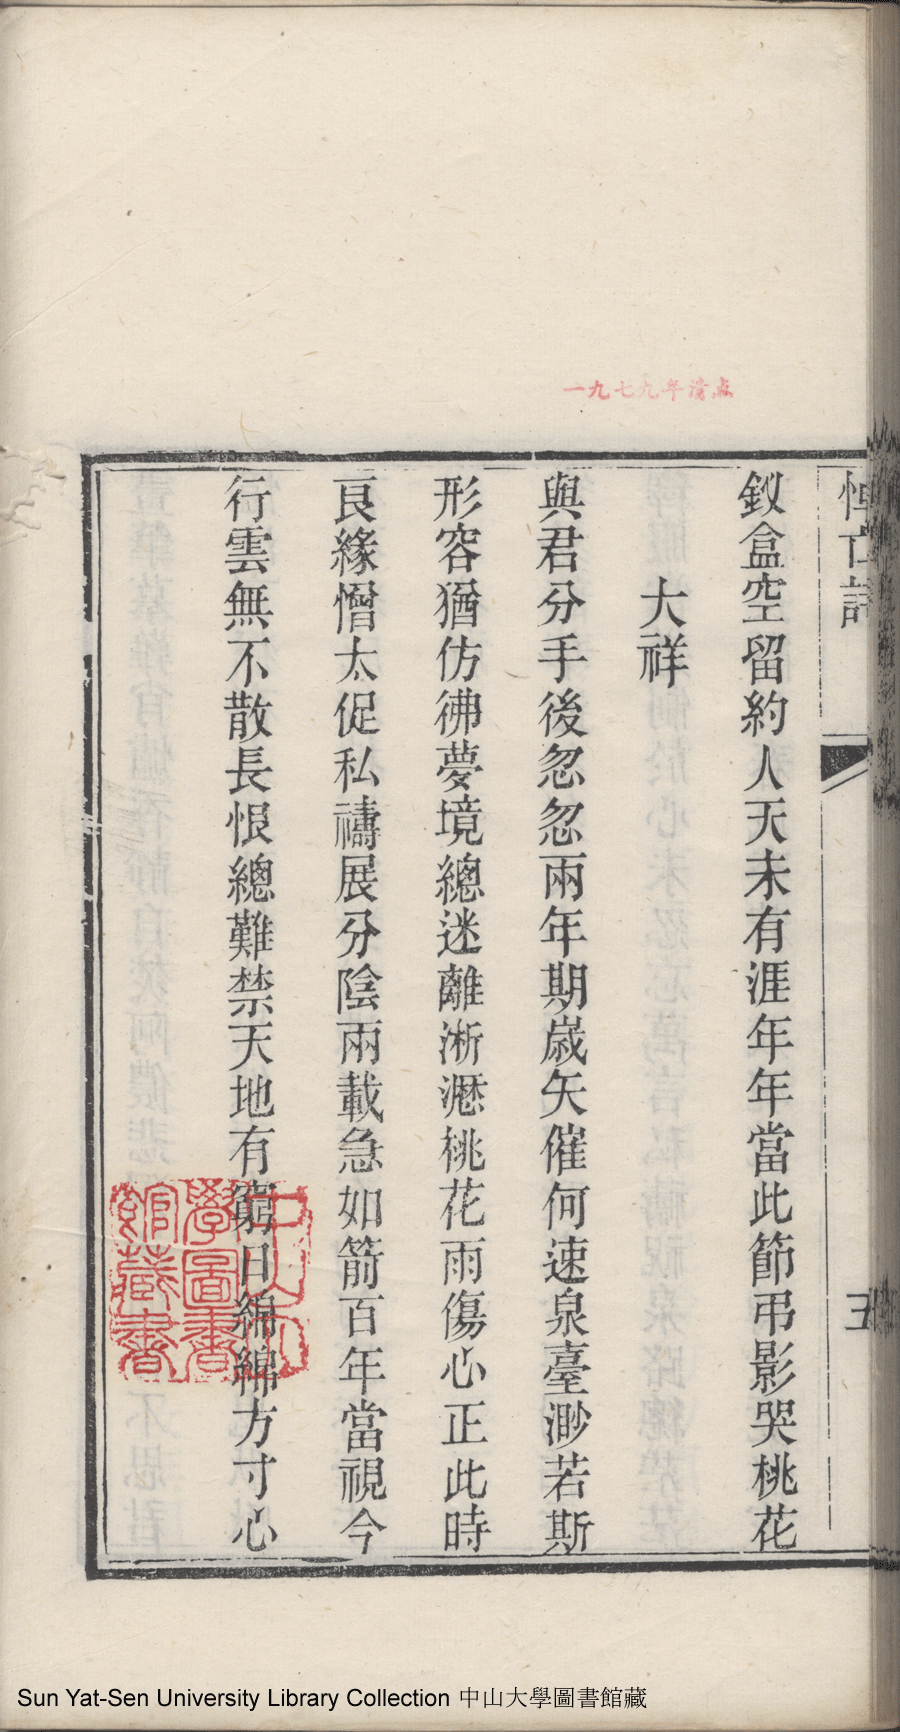 一九七九年清点
悼亡詩
五
釵盒空留約人天未有涯年年當此節弔影哭桃花
大祥
與君分手後忽忽兩年期歲矢催何速泉臺渺若斯
形容猶仿彿夢境總迷離淅瀝桃花雨傷心正此時
良緣憎太促私禱展分陰兩載急如箭百年當視今
行雲無不散長恨總難禁天地有窮日綿綿方寸心
中山大
學圖書
館藏書
Sun Yat-Sen University Library Collection 中山大學圖書館藏